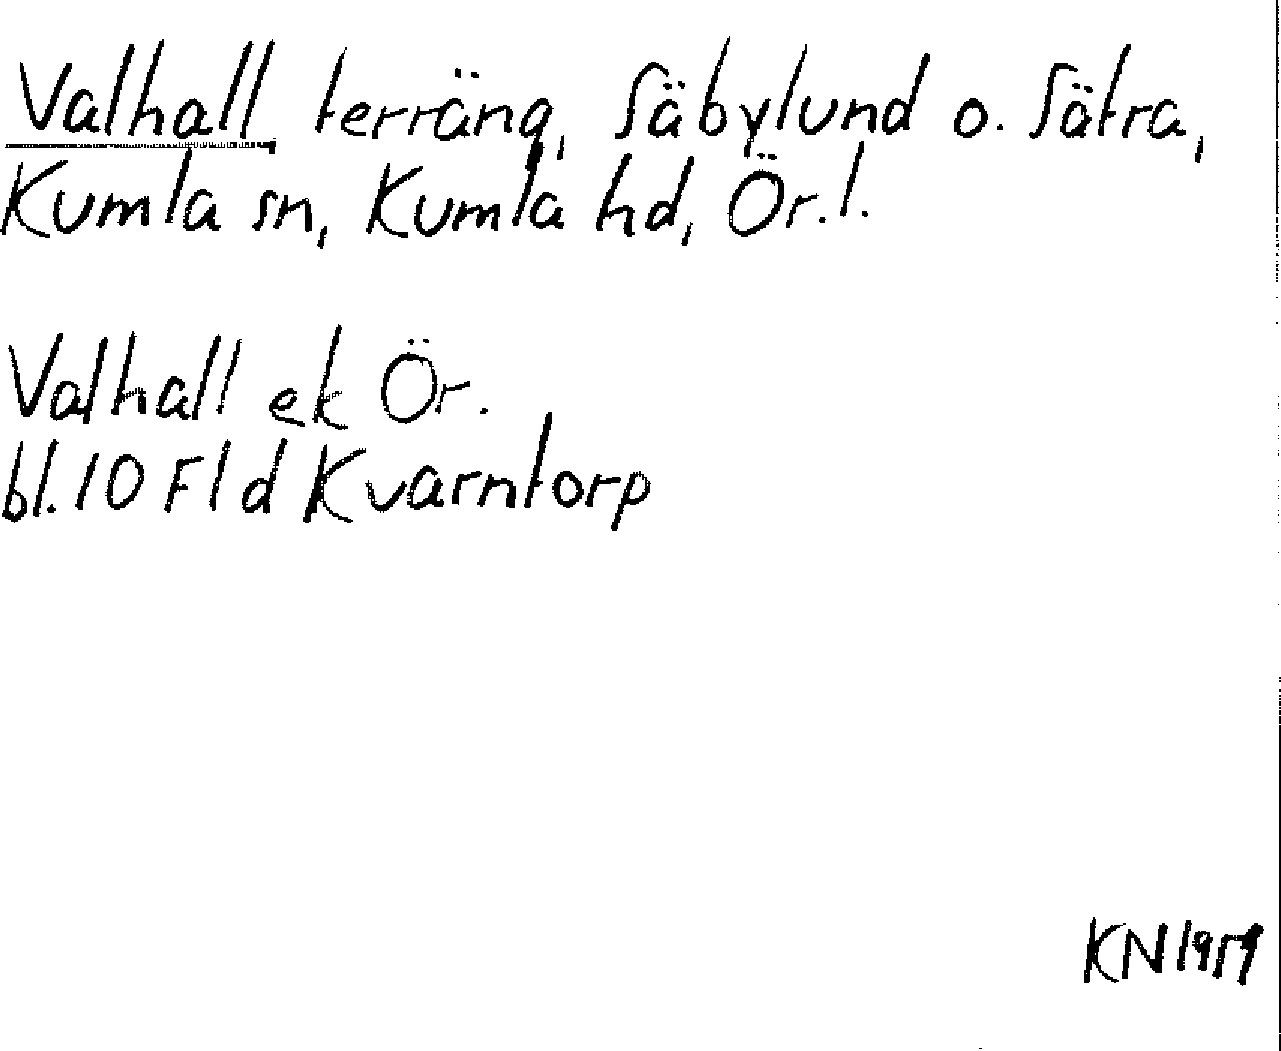 Valhall terräng, Säbylund o. Sätra,
Kumla sn, Kumla hd, Ör.l.
Valhall ek Ör.
bl. 10 F1d Kvarntorp
KN 1959